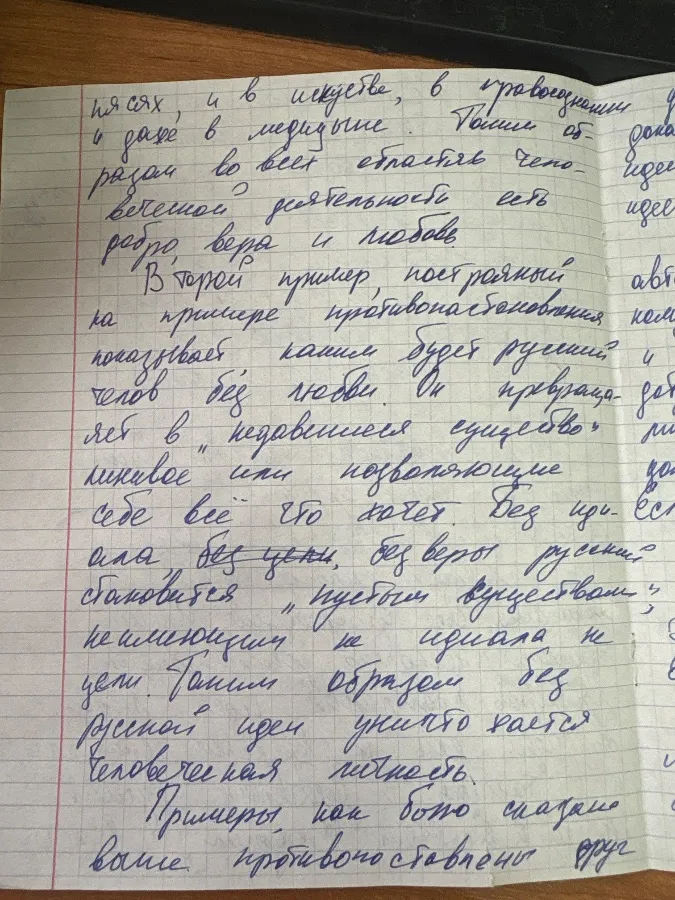 нясях, и в искустве, в правосознании
и даже в медицыне. Таким об-
разом во всех областях чело-
веческой деятельности есть
добро, вера и любовь.
Второй пример, построяный
на примере противопастоновления
показывает каким будет русский
челов без любви. Он превраща-
яет в „недавшиеся существо"
ленивое или позволяющие
себе всё что хочет. Без иди-
ала, без цели, без веры русский
становится „пустым существом",
неимеющим не идиала не
цели. Таким образом без
русской идеи уничтожается
человеческая личность.
Примеры, как было сказано
выше противопоставлены друг
дока
идеи
идее
авто
ком
и
Есл